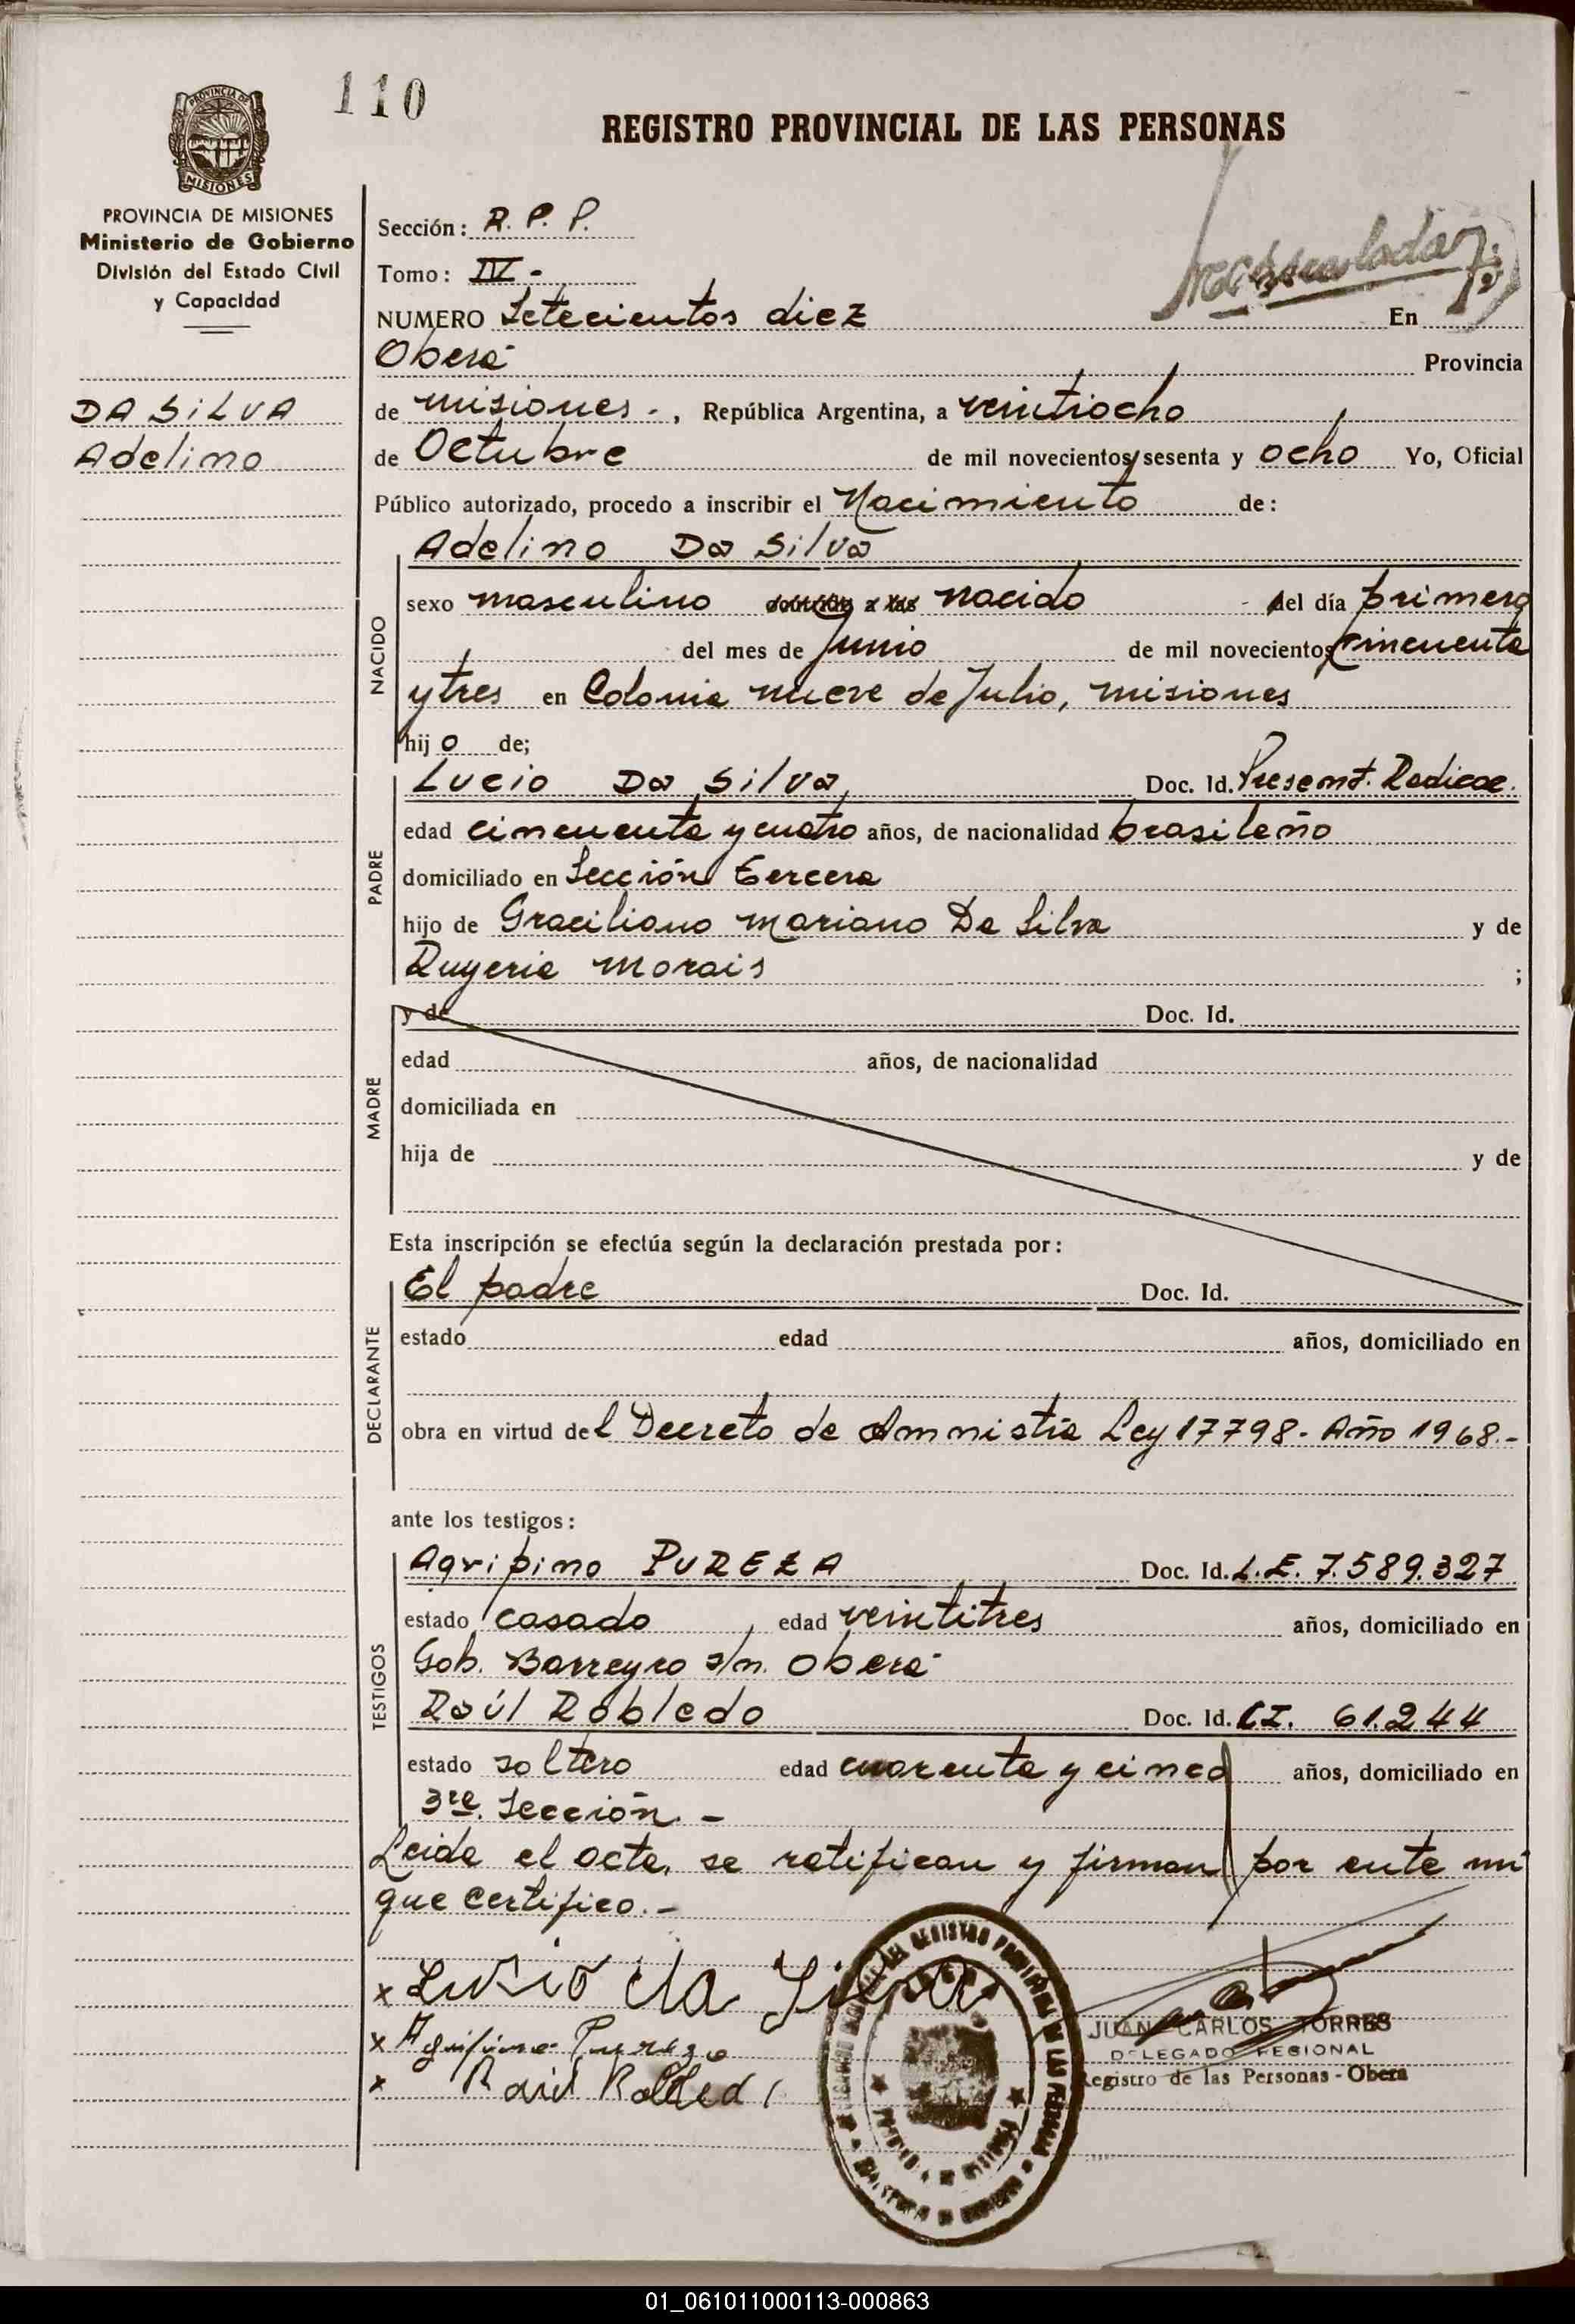 110
REGISTRO PROVINCIAL DE LAS PERSONAS
PROVINCIA DE
MISIONES
PROVINCIA DE MISIONES
Ministerio de Gobierno
División del Estado Civil
y Capacidad
DA SILVA
Adelino
Sección: R. P. P.
Tomo: IV -
NUMERO Setecientos diez En
Oberá Provincia
de misiones - , República Argentina, a veintiocho
de Octubre de mil novecientos sesenta y ocho Yo, Oficial
Público autorizado, procedo a inscribir el Nacimiento de:
Adelino Da Silva
NACIDO
sexo masculino nacido del día primero
del mes de Junio de mil novecientos cincuenta
y tres en Colonia nueve de Julio, misiones
hij o de;
PADRE
Lucio Da Silva Doc. Id. Present. Radicac.
edad cincuenta y cuatro años, de nacionalidad brasileño
domiciliado en Sección Tercera
hijo de Graciliano Mariano Da Silva y de
Morais ;
MADRE
y de Doc. Id.
edad años, de nacionalidad
domiciliada en
hija de y de
Esta inscripción se efectúa según la declaración prestada por:
DECLARANTE
El padre Doc. Id.
estado edad años, domiciliado en
obra en virtud del Decreto de Amnistía Ley 17798 - Año 1968.-
ante los testigos:
TESTIGOS
Agripino PUREZA Doc. Id. L.E. 7.589.327
estado casado, edad veintitres años, domiciliado en
Gob. Barreyro s/n. Oberá
Raúl Robledo Doc. Id. C.I. 61.244
estado soltero edad cuarenta y cinco años, domiciliado en
3ra. Sección. -
Leida el acta, se ratifican y firman por ante mi
que certifico. -
x Lusio da Silva
x Agripino Pureza
x Raul Robledo
JUAN CARLOS TORRES
DELEGADO REGIONAL
Registro de las Personas - Obera
01_061011000113-000863